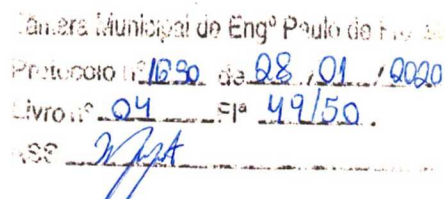 Câmara Municipal de Engº Paulo de Fro
Protocolo nº 1690 de 28 / 01 / 2020
Livro nº 04 Flª 49/50.
ASS